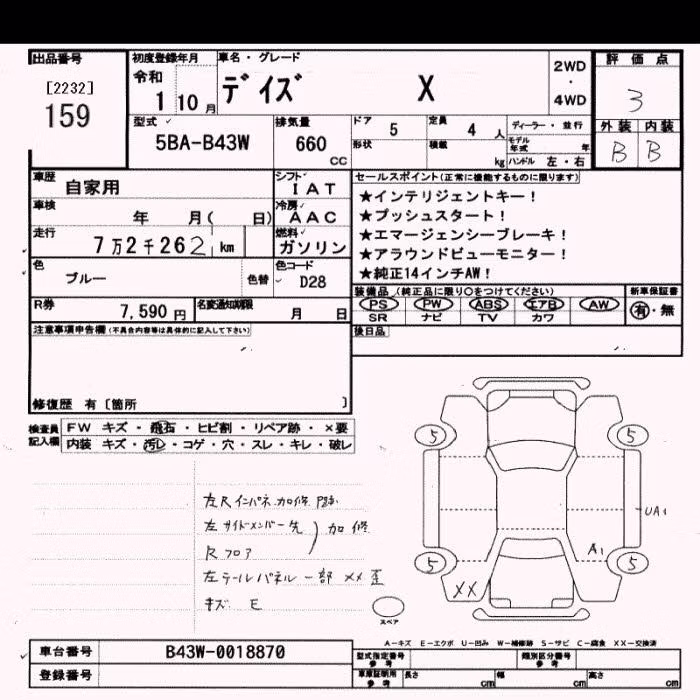 出品番号
[2232]
159
初度登録年月
令和
1 10 月
車名・グレード
デイズ X
2WD
・
4WD
評価点
3
外装 内装
B B
型式
5BA-B43W
排気量
660
CC
ドア 5
定員 4 人
ディーラー・並行
形状
積載 kg
モデル年式 年
ハンドル 左・右
車歴
自家用
シフト
IAT
車検
年 月( 日)
冷房
AAC
走行
7万2千262 km
燃料
ガソリン
色
ブルー
色替
色コード
D28
R券
7,590 円
名変通知期限
月 日
セールスポイント(正常に機能するものに限ります)
★インテリジェントキー!
★プッシュスタート!
★エマージェンシーブレーキ!
★アラウンドビューモニター!
★純正14インチAW!
装備品(純正品に限り○をつけてください)
PS PW ABS エアB AW
SR ナビ TV カワ
新車保証書
有・無
後日品
注意事項申告欄(不具合内容等は具体的に記入して下さい)
修復歴 有〔箇所 〕
検査員
記入欄
FW キズ・飛石・ヒビ割・リペア跡・×要
内装 キズ・汚レ・コゲ・穴・スレ・キレ・破レ
左Rインパネ加修
左サイドメンバー先 加修
Rフロア
左テールパネル一部 XX 歪
キズ E
5
5
5
5
UA1
A1
XX
スペア
A-キズ E-エクボ U-凹み W-補修跡 S-サビ C-腐食 XX-交換済
車台番号
B43W-0018870
登録番号
型式指定番号
参考
類別区分番号
参考
車庫証明用
参考
長さ cm
幅 cm
高さ cm